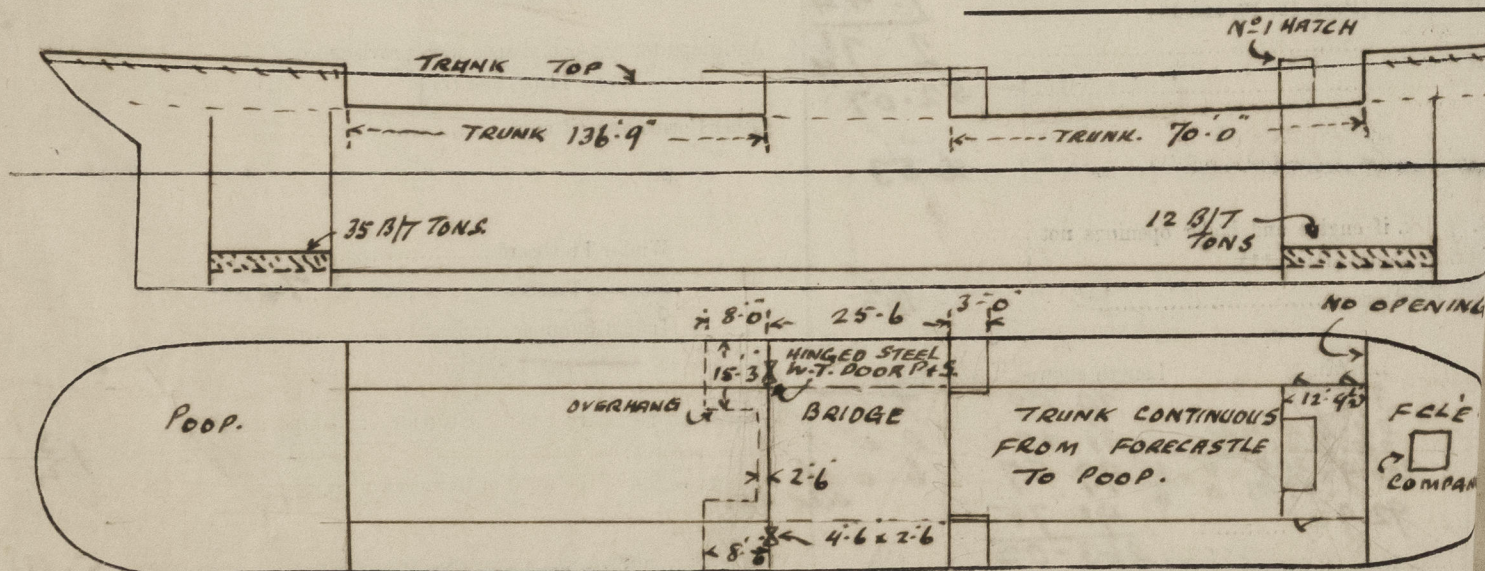 Nº 1 HATCH
TRUNK TOP
TRUNK 136'-9"
TRUNK. 70'-0"
35 B/T TONS.
12 B/T
TONS
NO OPENING
8'-0" 25-6 3'-0"
HINGED STEEL
W.T. DOOR P&S.
15'-3"
OVERHANG
POOP.
BRIDGE
TRUNK CONTINUOUS
FROM FORECASTLE
TO POOP.
FCLE
COMPAN
2'-6"
4'-6 x 2'-6"